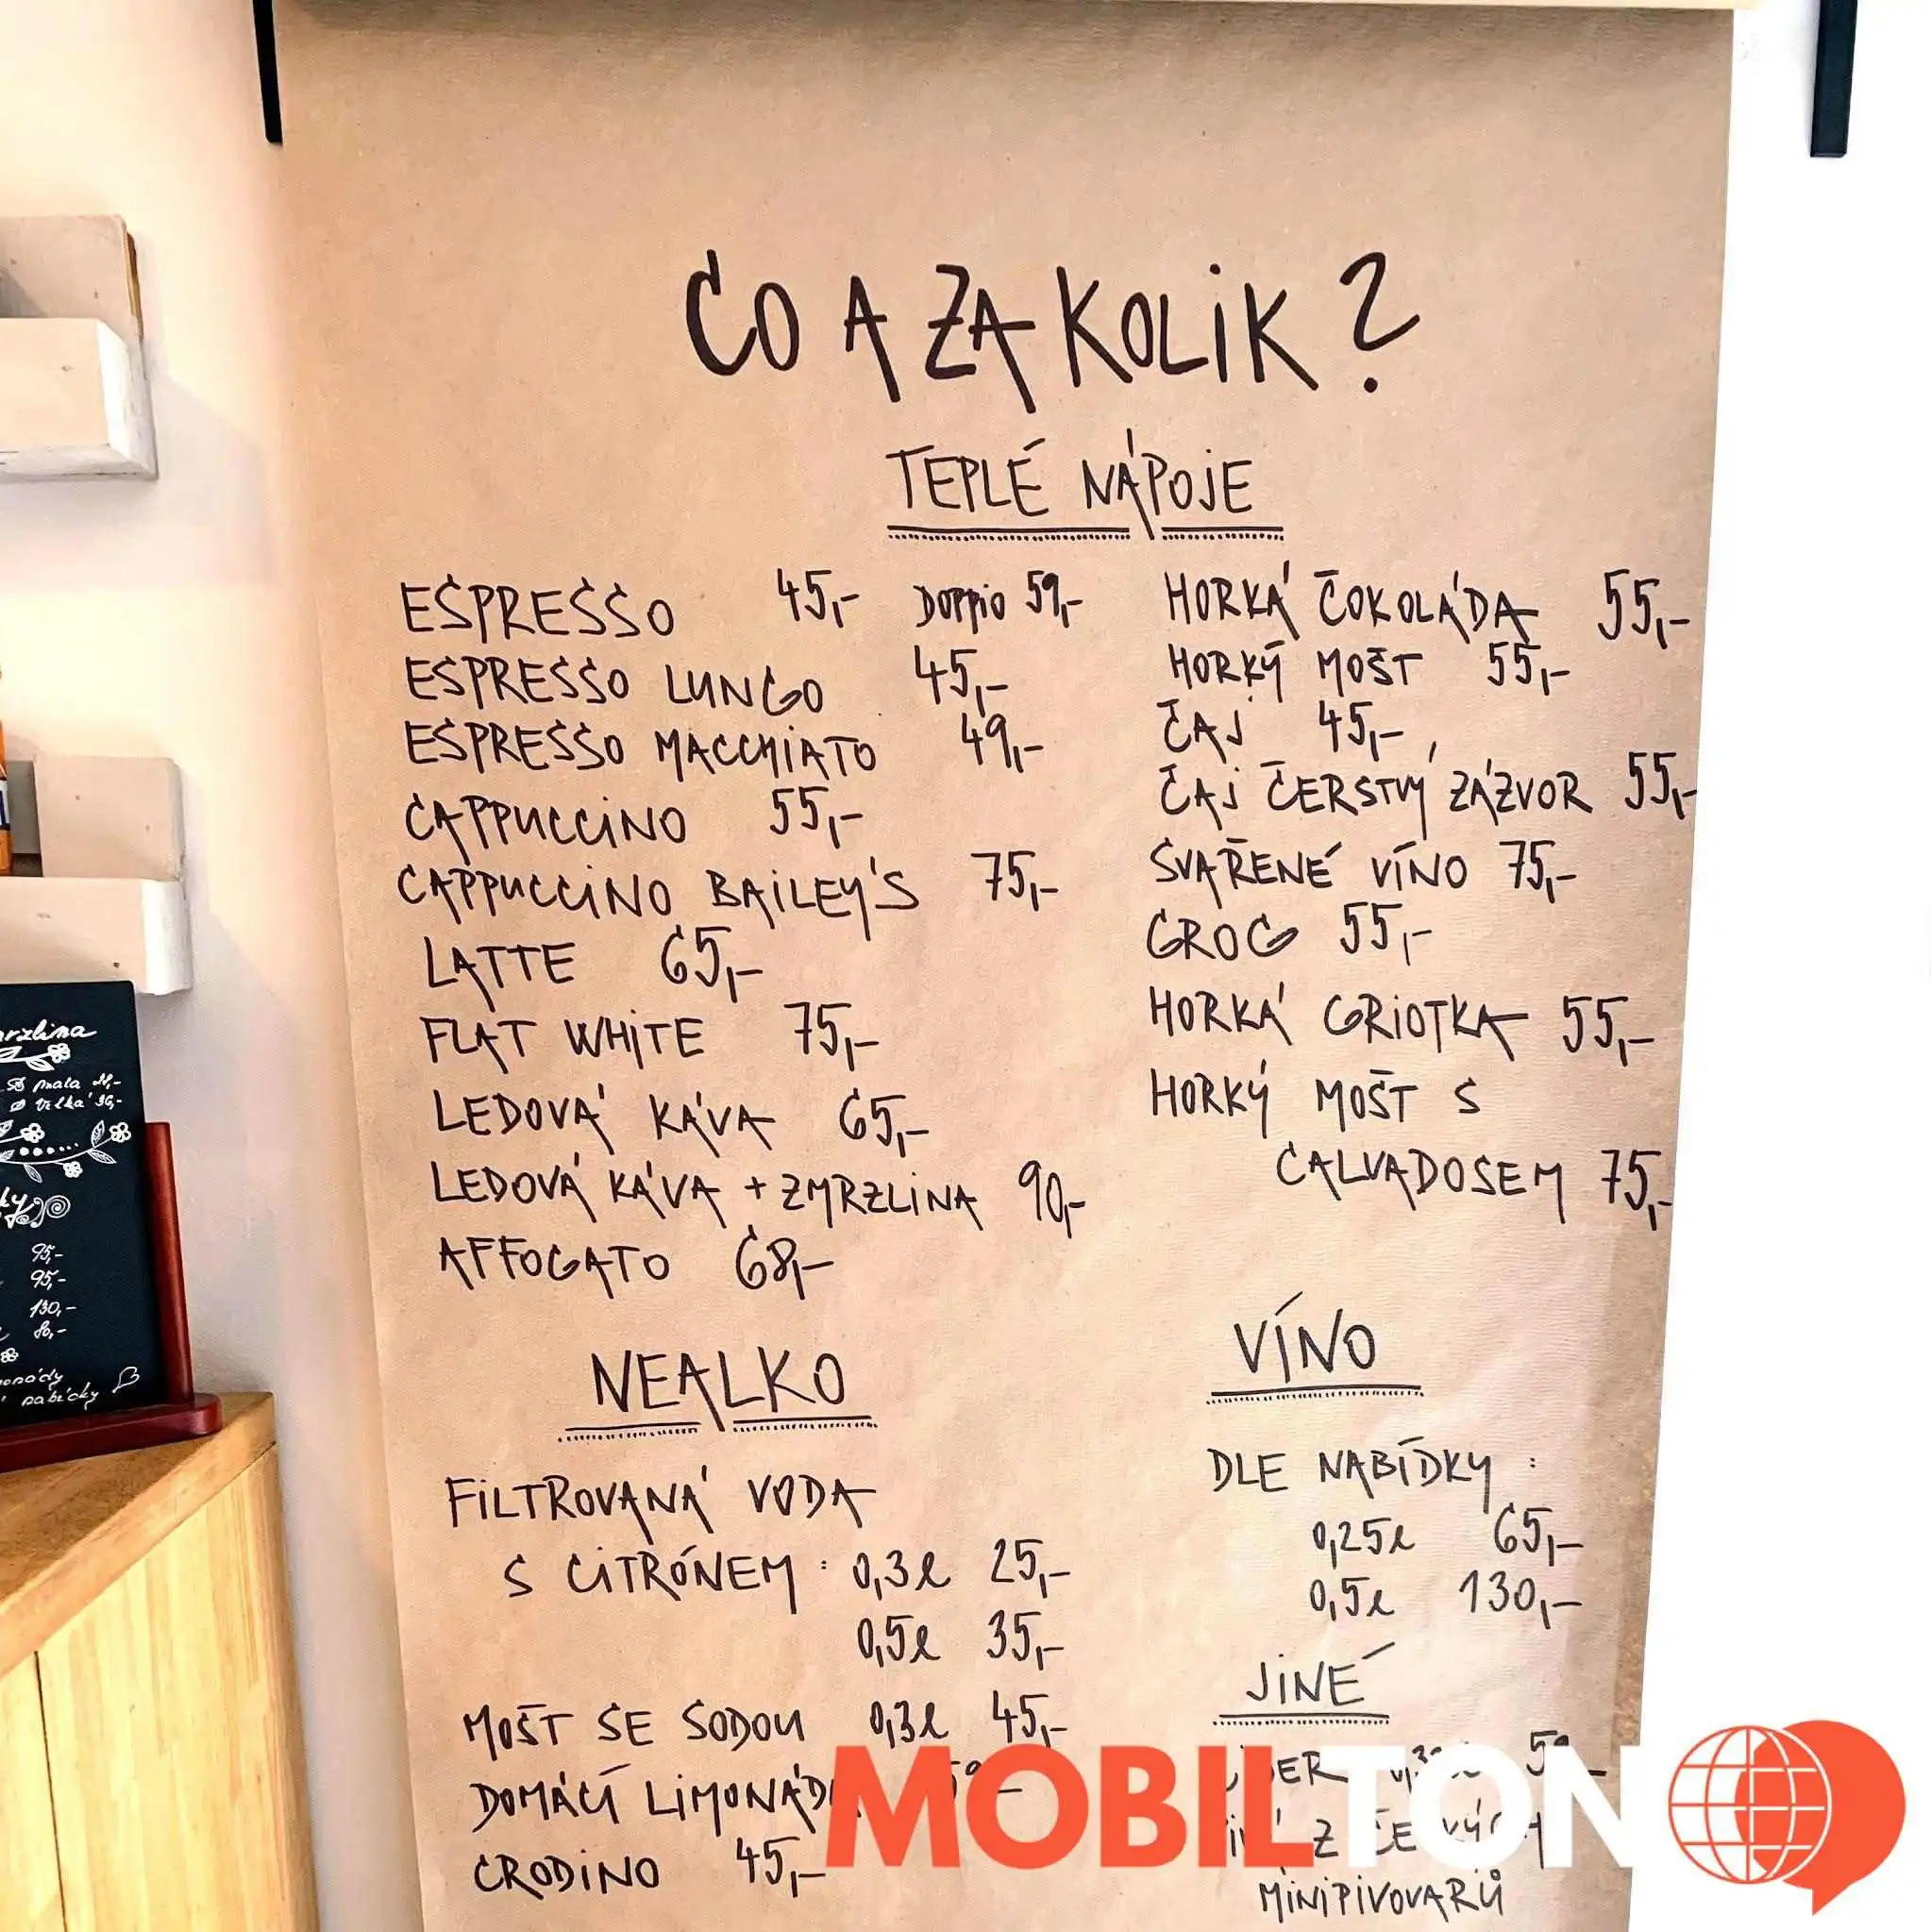 CO A ZA KOLIK?
TEPLÉ NÁPOJE
ESPRESSO 45,- DOPPIO 59,-
ESPRESSO LUNGO 45,-
ESPRESSO MACCHIATO 49,-
CAPPUCCINO 55,-
CAPPUCCINO BAILEY'S 75,-
LATTE 65,-
FLAT WHITE 75,-
LEDOVÁ KÁVA 65,-
LEDOVÁ KÁVA + ZMRZLINA 90,-
AFFOGATO 68,-
HORKÁ ČOKOLÁDA 55,-
HORKÝ MOŠT 55,-
ČAJ 45,-
ČAJ ČERSTVÝ ZÁZVOR 55,-
SVAŘENÉ VÍNO 75,-
GROG 55,-
HORKÁ GRIOTKA 55,-
HORKÝ MOŠT S
CALVADOSEM 75,-
NEALKO
FILTROVANÁ VODA
S CITRÓNEM : 0,3l 25,-
0,5l 35,-
MOŠT SE SODOU 0,3l 45,-
DOMÁCÍ
CRODINO 45,-
VÍNO
DLE NABÍDKY :
0,25l 65,-
0,5l 130,-
JINÉ
Z
MINIPIVOVARŮ
MOBILTON
malá
velká
95,-
95,-
130,-
80,-
nabídky